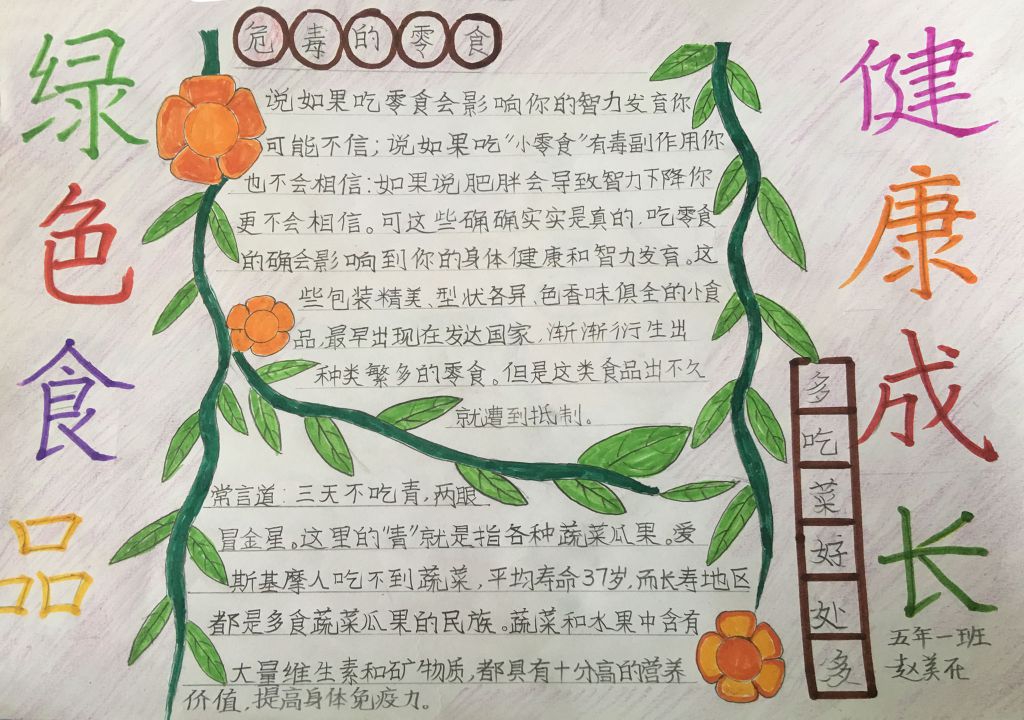 绿色食品
危毒的零食
说如果吃零食会影响你的智力发育你
可能不信；说如果吃“小零食”有毒副作用你
也不会相信：如果说肥胖会导致智力下降你
更不会相信。可这些确确实实是真的，吃零食
的确会影响到你的身体健康和智力发育。这
些包装精美、型状各异、色香味俱全的小食
品，最早出现在发达国家，渐渐衍生出
种类繁多的零食。但是这类食品出不久
就遭到抵制。
常言道：三天不吃青，两眼
冒金星。这里的“青”就是指各种蔬菜瓜果。爱
斯基摩人吃不到蔬菜，平均寿命37岁，而长寿地区
都是多食蔬菜瓜果的民族。蔬菜和水果中含有
大量维生素和矿物质，都具有十分高的营养
价值，提高身体免疫力。
多吃菜好处多
健康成长
五年一班
赵美在